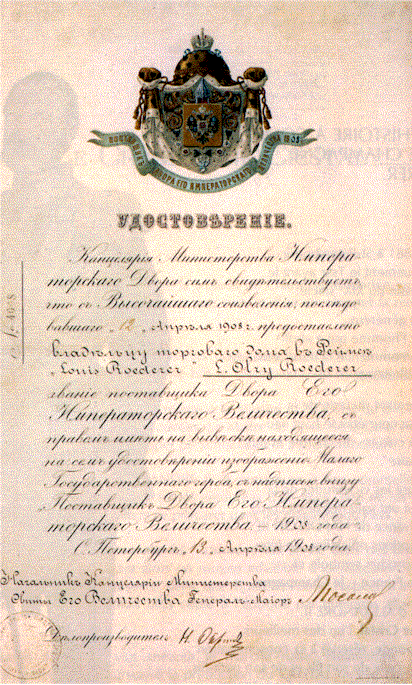 ПОСТАВЩИКЪ ДВОРА ЕГО ИМПЕРАТОРСКАГО ВЕЛИЧЕСТВА 1908
УДОСТОВѢРЕНІЕ.
Канцелярія Министерства Импера-
торскаго Двора симъ свидѣтельствуетъ,
что съ Высочайшаго соизволенія, послѣдо-
вавшаго „12„ Апрѣля 1908 г. предоставлено
владѣльцу торговаго дома въ Реймсѣ
„Louis Roederer" L. Olry Roederer
званіе поставщика Двора Его
Императорскаго Величества, съ
правомъ имѣть на вывѣскѣ находящееся
на семъ удостовѣреніи изображеніе Малаго
Государственнаго герба, съ надписью внизу
„Поставщикъ Двора Его Импера-
торскаго Величества – 1908 года.
С. Петербургъ, 13 „ Апрѣля 1908 года.
Начальникъ Канцеляріи Министерства
Свиты Его Величества Генералъ-Маіоръ Мосолов
Дѣлопроизводитель Н.